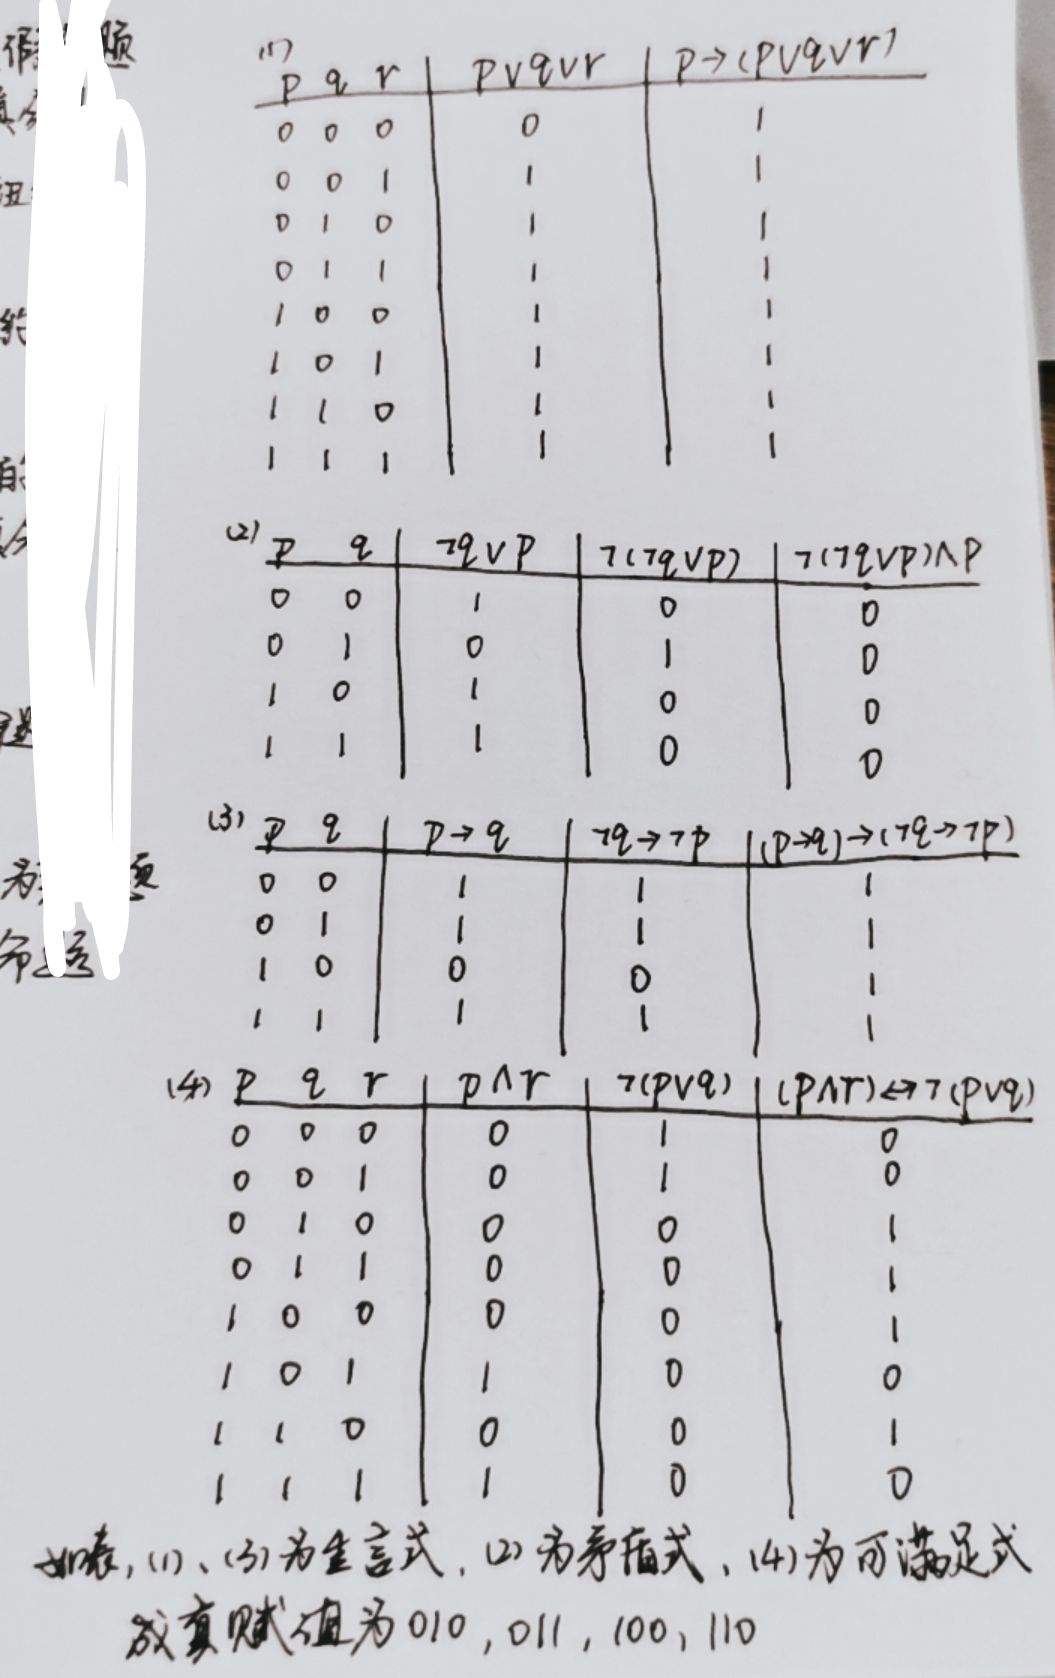 假 题
(1)
p q r p∨q∨r p→(p∨q∨r)
0 0 0 0 1
0 0 1 1 1
0 1 0 1 1
0 1 1 1 1
1 0 0 1 1
1 0 1 1 1
1 1 0 1 1
1 1 1 1 1
(2) p q ¬q∨p ¬(¬q∨p) ¬(¬q∨p)∧p
0 0 1 0 0
0 1 0 1 0
1 0 1 0 0
1 1 1 0 0
(3) p q p→q ¬q→¬p (p→q)→(¬q→¬p)
0 0 1 1 1
0 1 1 1 1
1 0 0 0 1
1 1 1 1 1
(4) p q r p∧r ¬(p∨q) (p∧r)↔¬(p∨q)
0 0 0 0 1 0
0 0 1 0 1 0
0 1 0 0 0 1
0 1 1 0 0 1
1 0 0 0 0 1
1 0 1 1 0 0
1 1 0 0 0 1
1 1 1 1 0 0
如表,(1)、(3)为重言式、(2)为矛盾式、(4)为可满足式
成真赋值为010,011,100,110